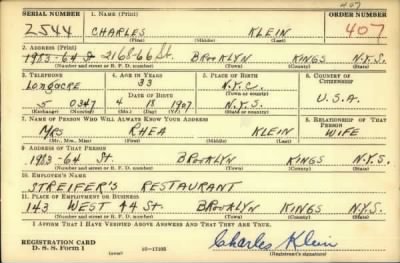 407
SERIAL NUMBER 1. NAME (Print) ORDER NUMBER
2544 CHARLES KLEIN 407
(First) (Middle) (Last)
2. ADDRESS (Print)
1983-64 St 2168-66 St. BROOKLYN KINGS N.Y.S.
(Number and street or R. F. D. number) (Town) (County) (State)
3. TELEPHONE 4. AGE IN YEARS 5. PLACE OF BIRTH 6. COUNTRY OF CITIZENSHIP
Longacre 33 N.Y.C.
DATE OF BIRTH (Town or county)
5 0347 4 18 1907 N.Y.S. U.S.A.
(Exchange) (Number) (Mo.) (Day) (Yr.) (State or country)
7. NAME OF PERSON WHO WILL ALWAYS KNOW YOUR ADDRESS 8. RELATIONSHIP OF THAT PERSON
MRS RHEA KLEIN WIFE
(Mr., Mrs., Miss) (First) (Middle) (Last)
9. ADDRESS OF THAT PERSON
1983-64 St. BROOKLYN KINGS N.Y.S.
(Number and street or R. F. D. number) (Town) (County) (State)
10. EMPLOYER'S NAME
STREIFER'S RESTAURANT
11. PLACE OF EMPLOYMENT OR BUSINESS
143 WEST 44 St. BROOKLYN KINGS N.Y.S.
(Number and street or R. F. D. number) (Town) (County) (State)
I AFFIRM THAT I HAVE VERIFIED ABOVE ANSWERS AND THAT THEY ARE TRUE.
REGISTRATION CARD
D. S. S. Form 1 (over) Charles Klein
(Registrant's signature)